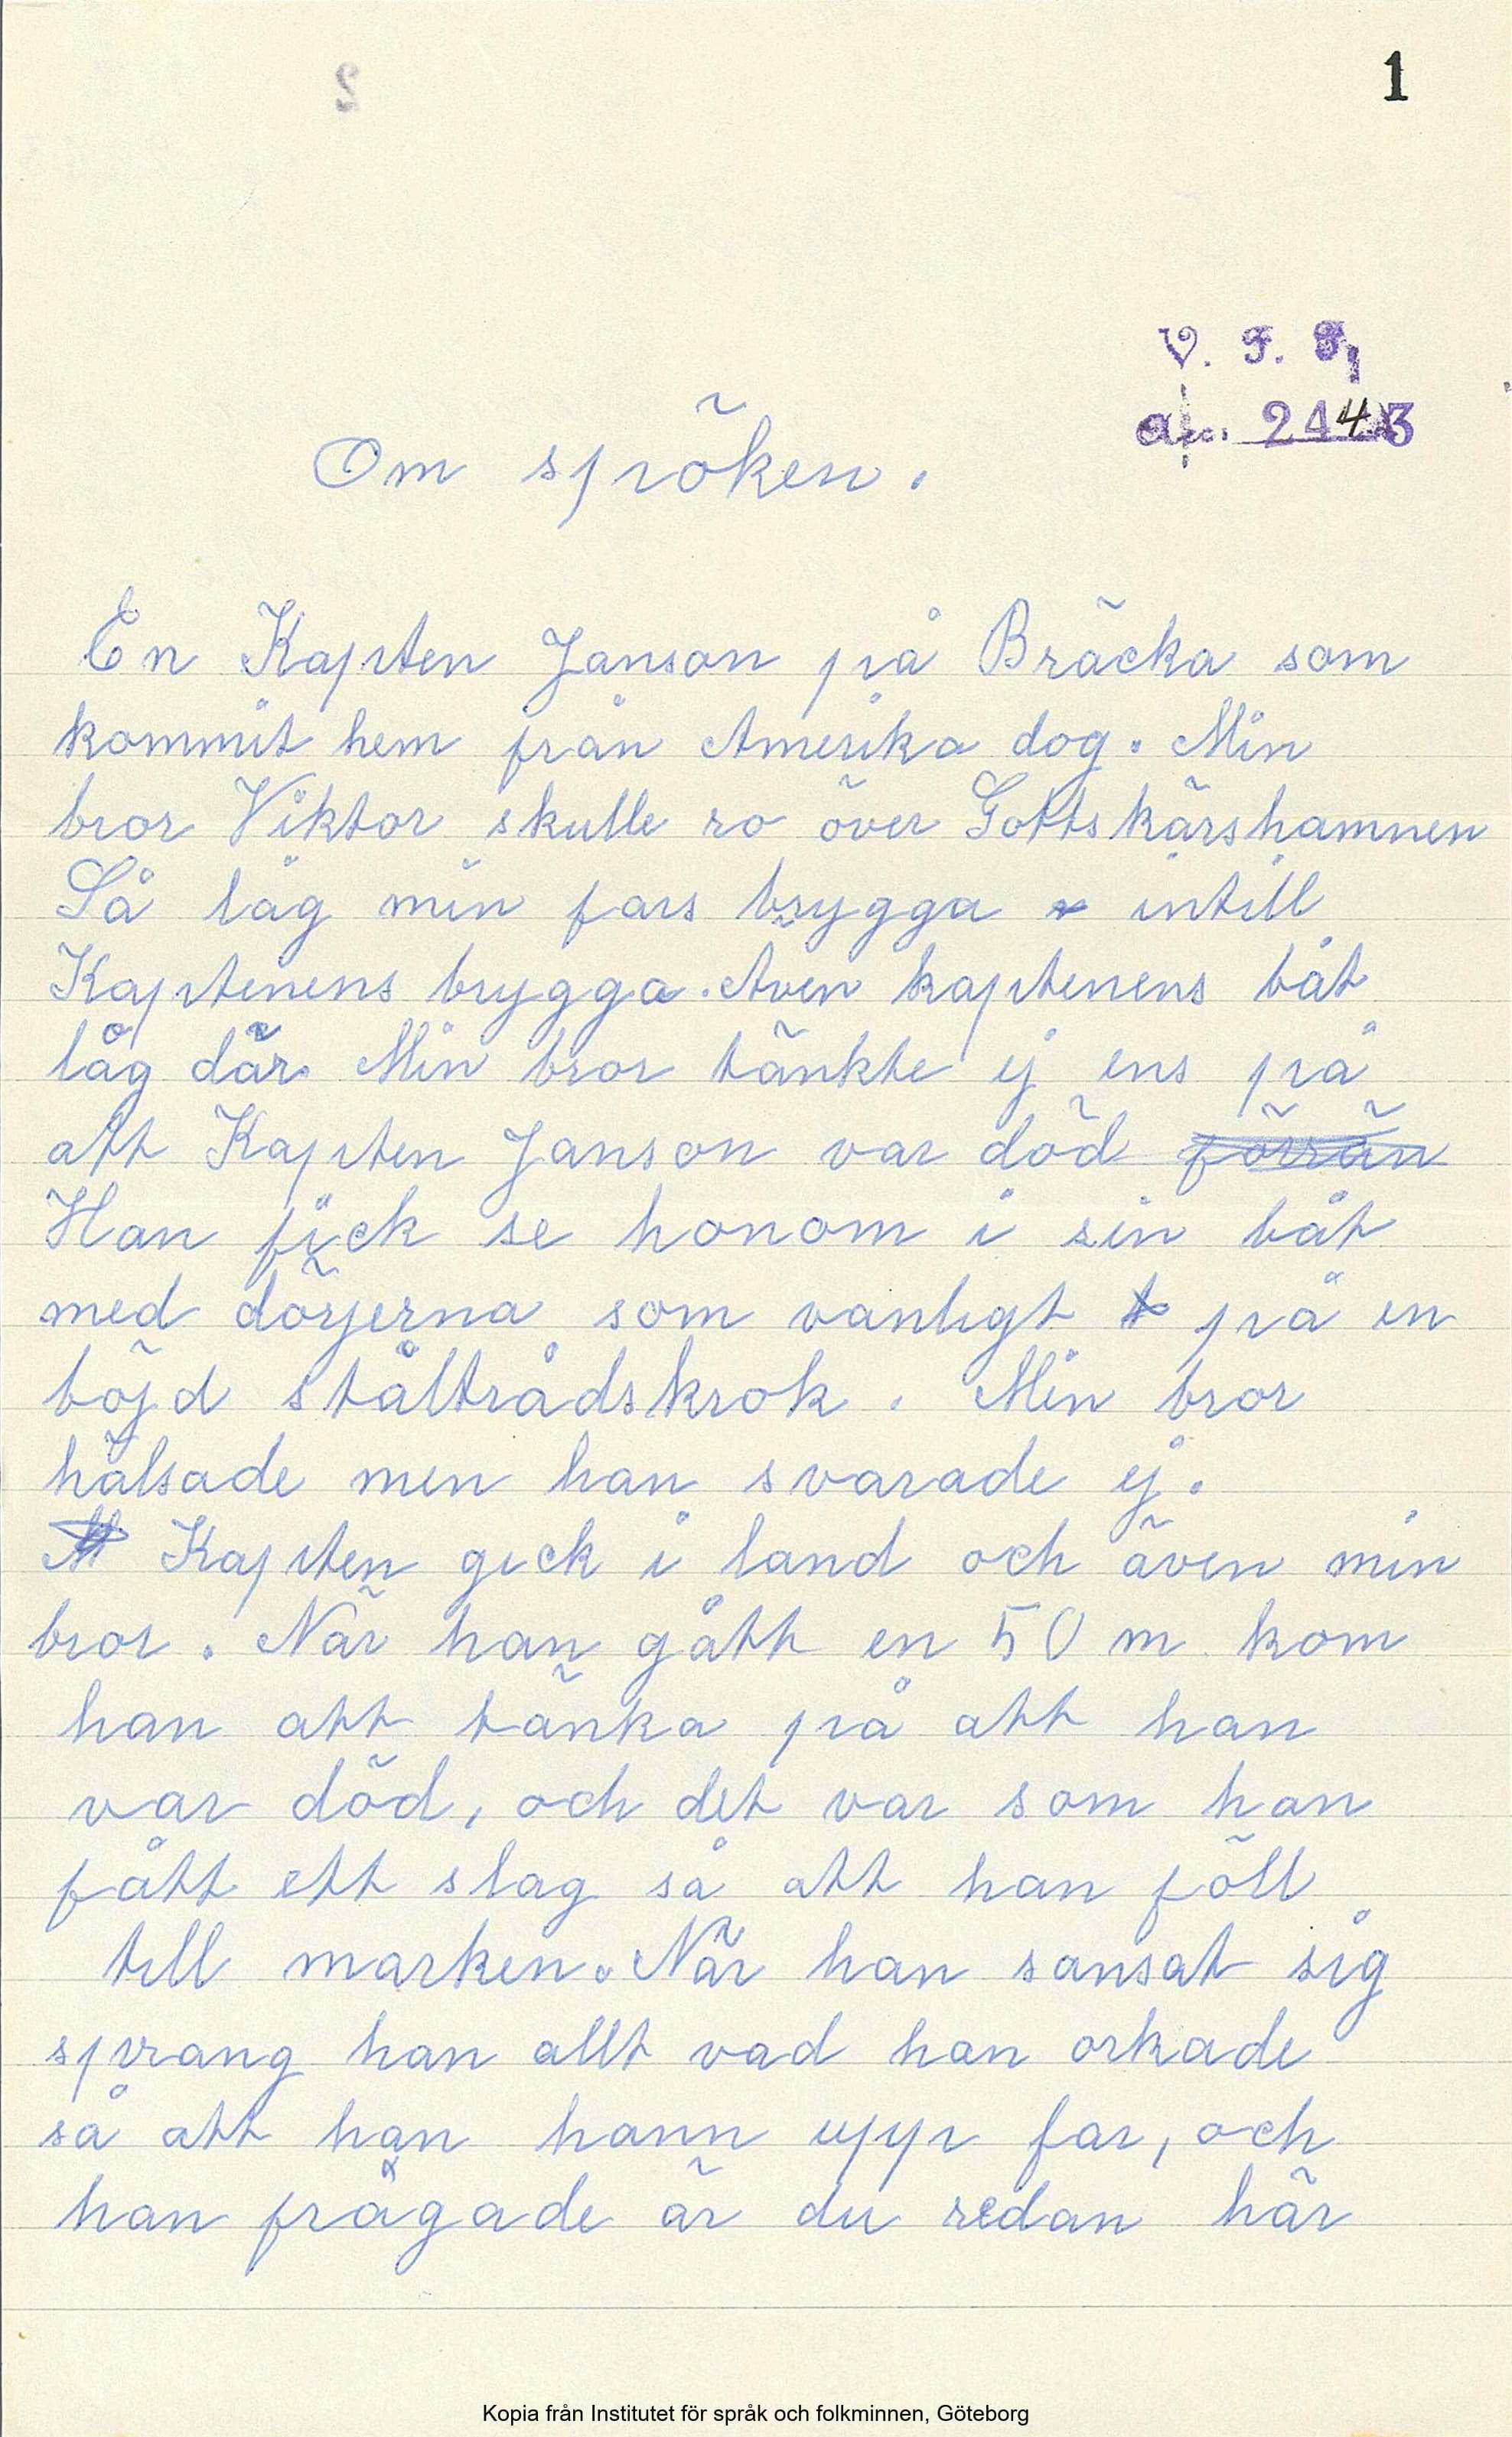 1
V. F. F.
acc. 2443
Om spöken.
En Kapten Janson på Bräcka som
kommit hem från Amerika dog. Min
bror Viktor skulle ro över Gottskärshamnen
Så låg min fars brygga intill
Kaptenens brygga. Även kaptenens båt
låg där. Min bror tänkte ej ens på
att Kapten Janson var död förrän
Han fick se honom i sin båt
med dörjerna som vanligt på en
böjd ståltrådskrok. Min bror
hälsade men han svarade ej.
Kapten gick i land och även min
bror. När han gått en 50 m kom
han att tänka på att han
var död, och det var som han
fått ett slag så att han föll
till marken. När han sansat sig
sprang han allt vad han orkade
så att han hann upp far, och
han frågade är du redan här
Kopia från Institutet för språk och folkminnen, Göteborg